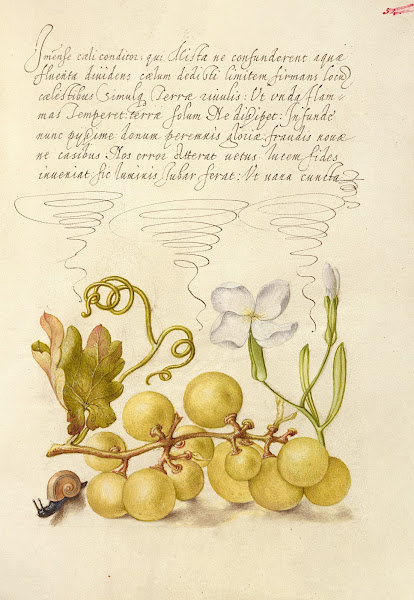 Jmense cæli conditor: qui Mista ne confunderent aquæ
fluenta dividens cælum dedisti limitem firmans locũ
cælestibus Simulq₃ Terræ rivulis: Vt vnda flam-
mas Temperet: terræ solum Ne dissipet: Infunde
nunc pyssime donum peremnis gloriæ: fraudis nouæ
ne casibus Nos error Atterat uetus lutem fides
inveniat sic luminis Jubar ferat: Vt uana cuncta